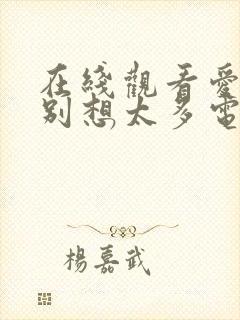 在綫觀看愛
別想太多電
楊嘉武